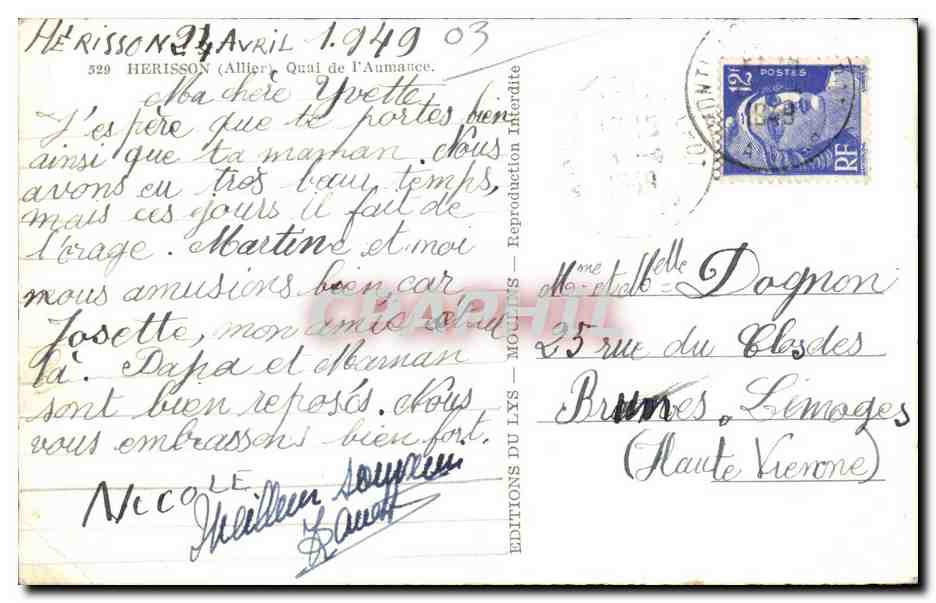 HÉRISSON 24 AVRIL 1.949 03
529 HERISSON (Allier). Quai de l'Aumance.
Ma chère Yvette
J'espère que te portes bien
ainsi que ta maman. Nous
avons eu très beau temps,
mais ces jours il fait de
l'orage. Martine et moi
nous amusions bien car
Josette, mon amie était
là. Papa et Maman
sont bien reposés. Nous
vous embrassons bien fort.
NICOLE
Meilleur souvenir
EDITIONS DU LYS — MOULINS — Reproduction Interdite
12F POSTES
RF
Mme et Melle Dognon
25 rue du Clos des
Brunes. Limoges
(Haute Vienne)
CPAPHIL